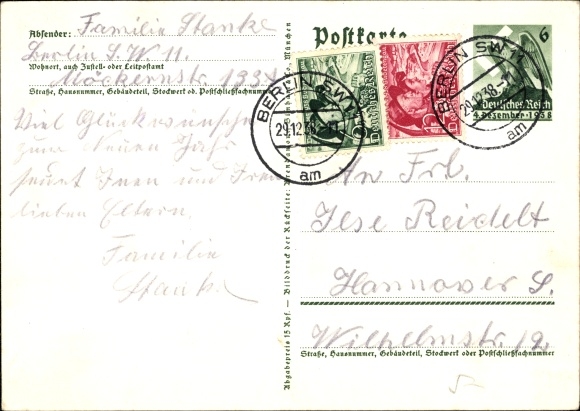 Absender: Familie Stanke
Berlin S.W. 11.
Wohnort, auch Zustell- oder Leitpostamt
Möckernstr.
Straße, Hausnummer, Gebäudeteil, Stockwerk od. Postschließfachnummer
Viel Glückwünsche
zum Neuen Jahr
sendet Inen und Iren
lieben Eltern.
Familie
Stanke
Postkarte
6
Deutsches Reich
4. Dezember 1938
BERLIN SW 11
29.12.38
am
BERLIN SW 11
29.12.38
am
Deutsches Reich
Deutsches Reich
An Frl.
Ilse Reidelt
Hannover S.
Wilhelmstr. 12.
Straße, Hausnummer, Gebäudeteil, Stockwerk oder Postschließfachnummer
Abgabepreis 15 Rpf. — Bilddruck der Rückseite:
München